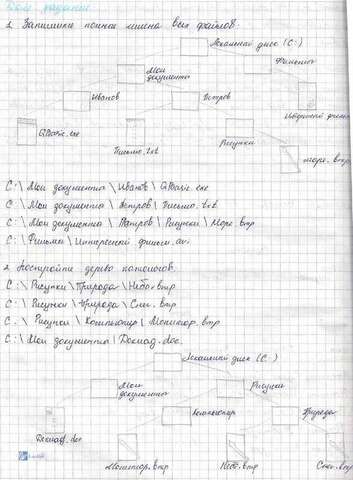 Дом. задание
1. Запишите полные имена всех файлов.
Локальный диск (C:)
Мои
документы
Фильмы
Иванов
Петров
QBasic.exe
Письмо.txt
Рисунки
Интересный фильм
Море.bmp
C:\ Мои документы \ Иванов \ QBasic.exe
C:\ Мои документы \ Петров \ Письмо.txt
C:\ Мои документы \ Петров \ Рисунки \ Море.bmp
C:\ Фильмы \ Интересный фильм.avi
2. Постройте дерево каталогов.
C:\ Рисунки \ Природа \ Небо.bmp
C:\ Рисунки \ Природа \ Снег.bmp
C:\ Рисунки \ Компьютер \ Монитор.bmp
C:\ Мои документы \ Доклад.doc
Локальный диск (C:)
Мои
документы
Рисунки
Компьютер
Природа
Доклад.doc
Монитор.bmp
Небо.bmp
Снег.bmp